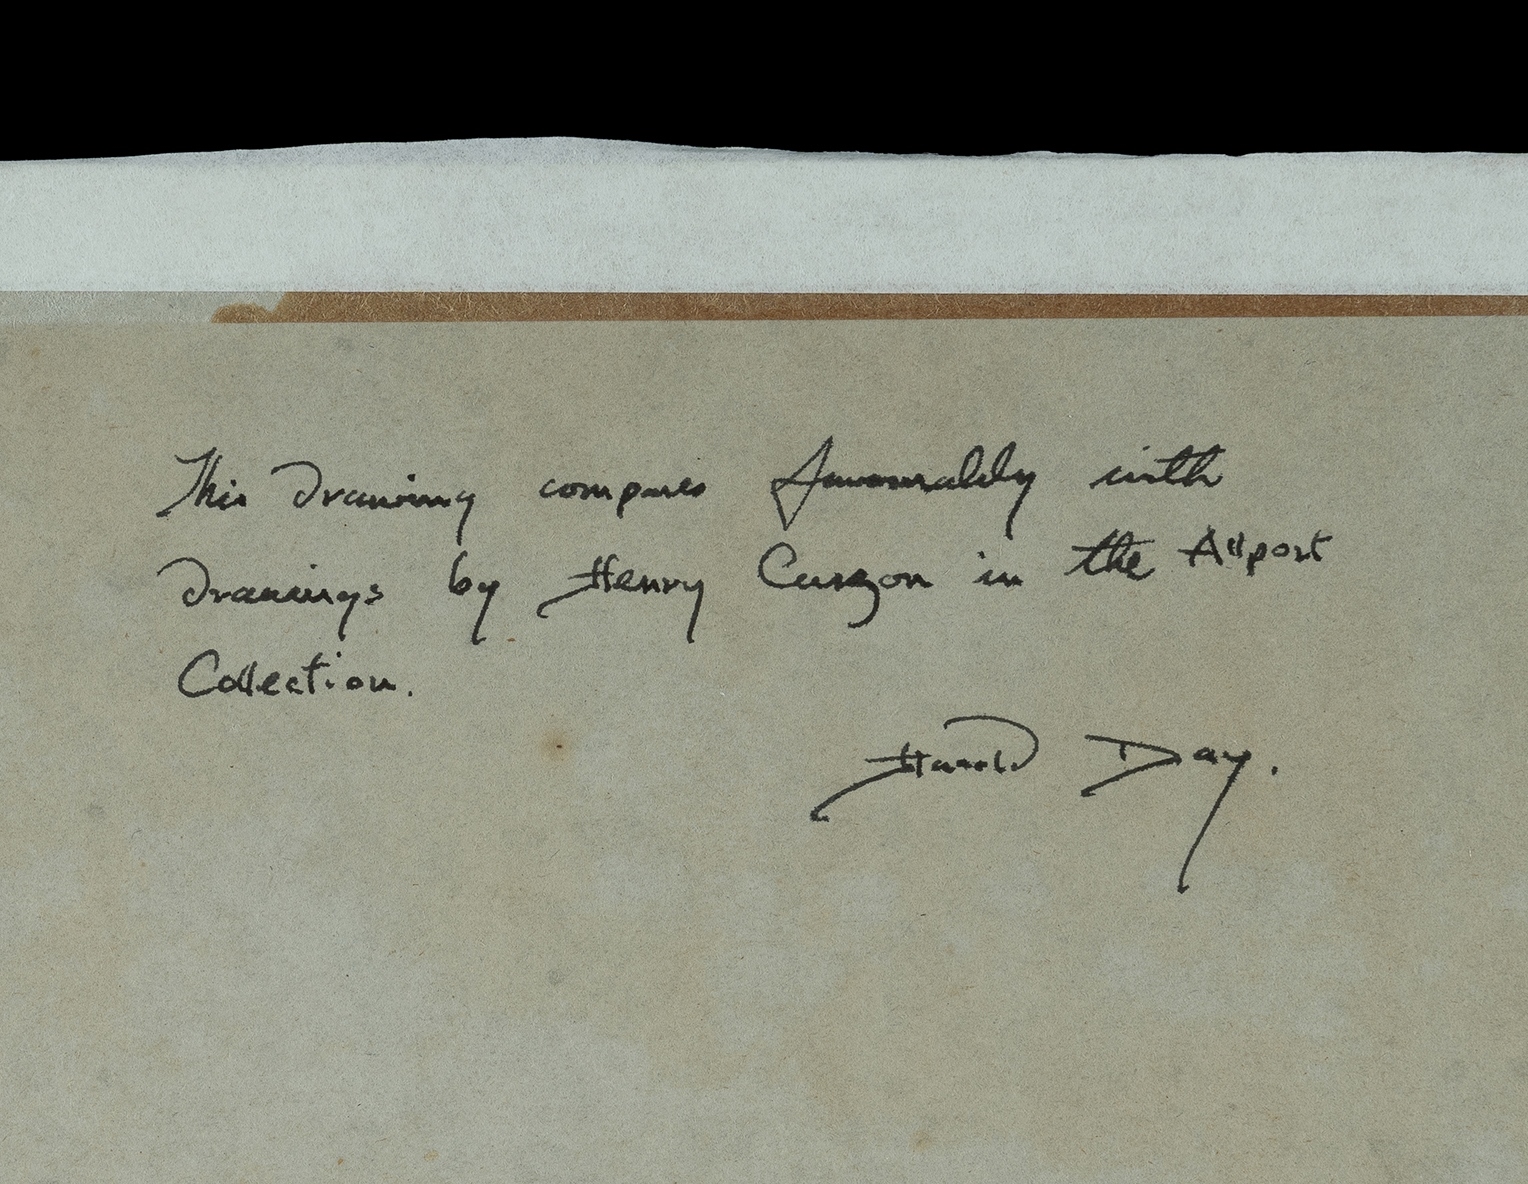 This Drawing compares favourably with
Drawings by Henry Curzon in the Allport
Collection.
Harold Day.